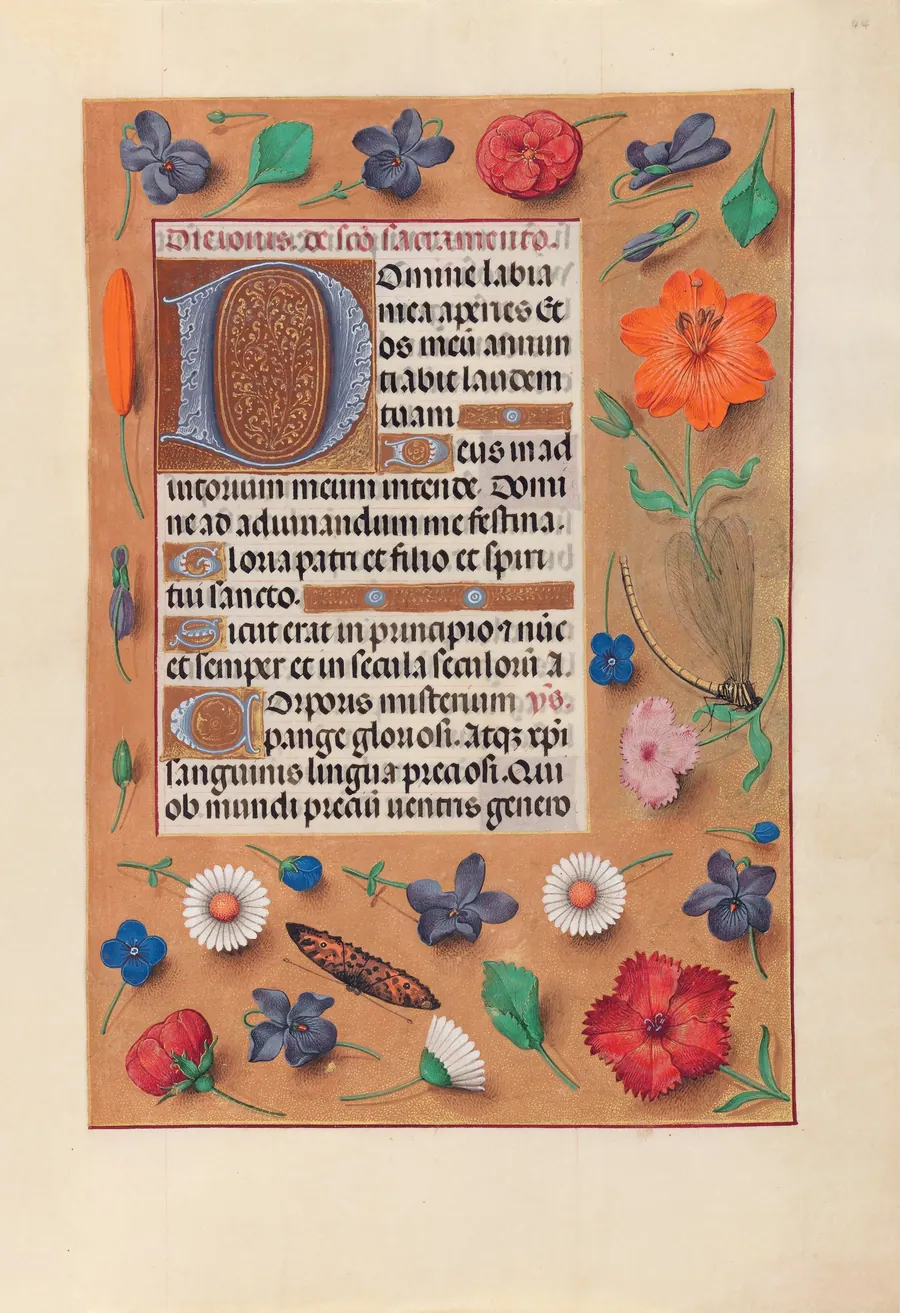 44
Die iouis. de sc̄o sacramento.
Domine labia
mea aperies Et
os meū annun
tiabit laudem
tuam
Deus in ad
iutorium meum intende. Domi
ne ad adiuuandum me festina.
Gloria patri et filio et spiri
tui sancto.
Sicut erat in principio ⁊ nūc
et semper et in secula seculorū A.
Corporis misterium yṁs.
pange gloriosi. Atqꝫ xp̄i
sanguinis lingua preciosi. Qui
ob mundi preciū uentris genero